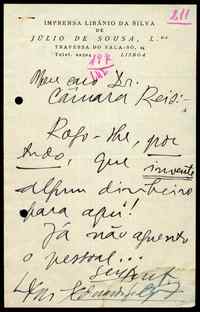 IMPRENSA LIBÂNIO DA SILVA
DE
JÚLIO DE SOUSA, L.da
TRAVESSA DO FALA-SÓ, 24
Telef. LISBOA
211
Meu caro Dr.
Câmara Reis:-
Rogo-lhe, por
tudo, que invente
algum dinheiro
para aqui!
Já não aguento
o pessoal...